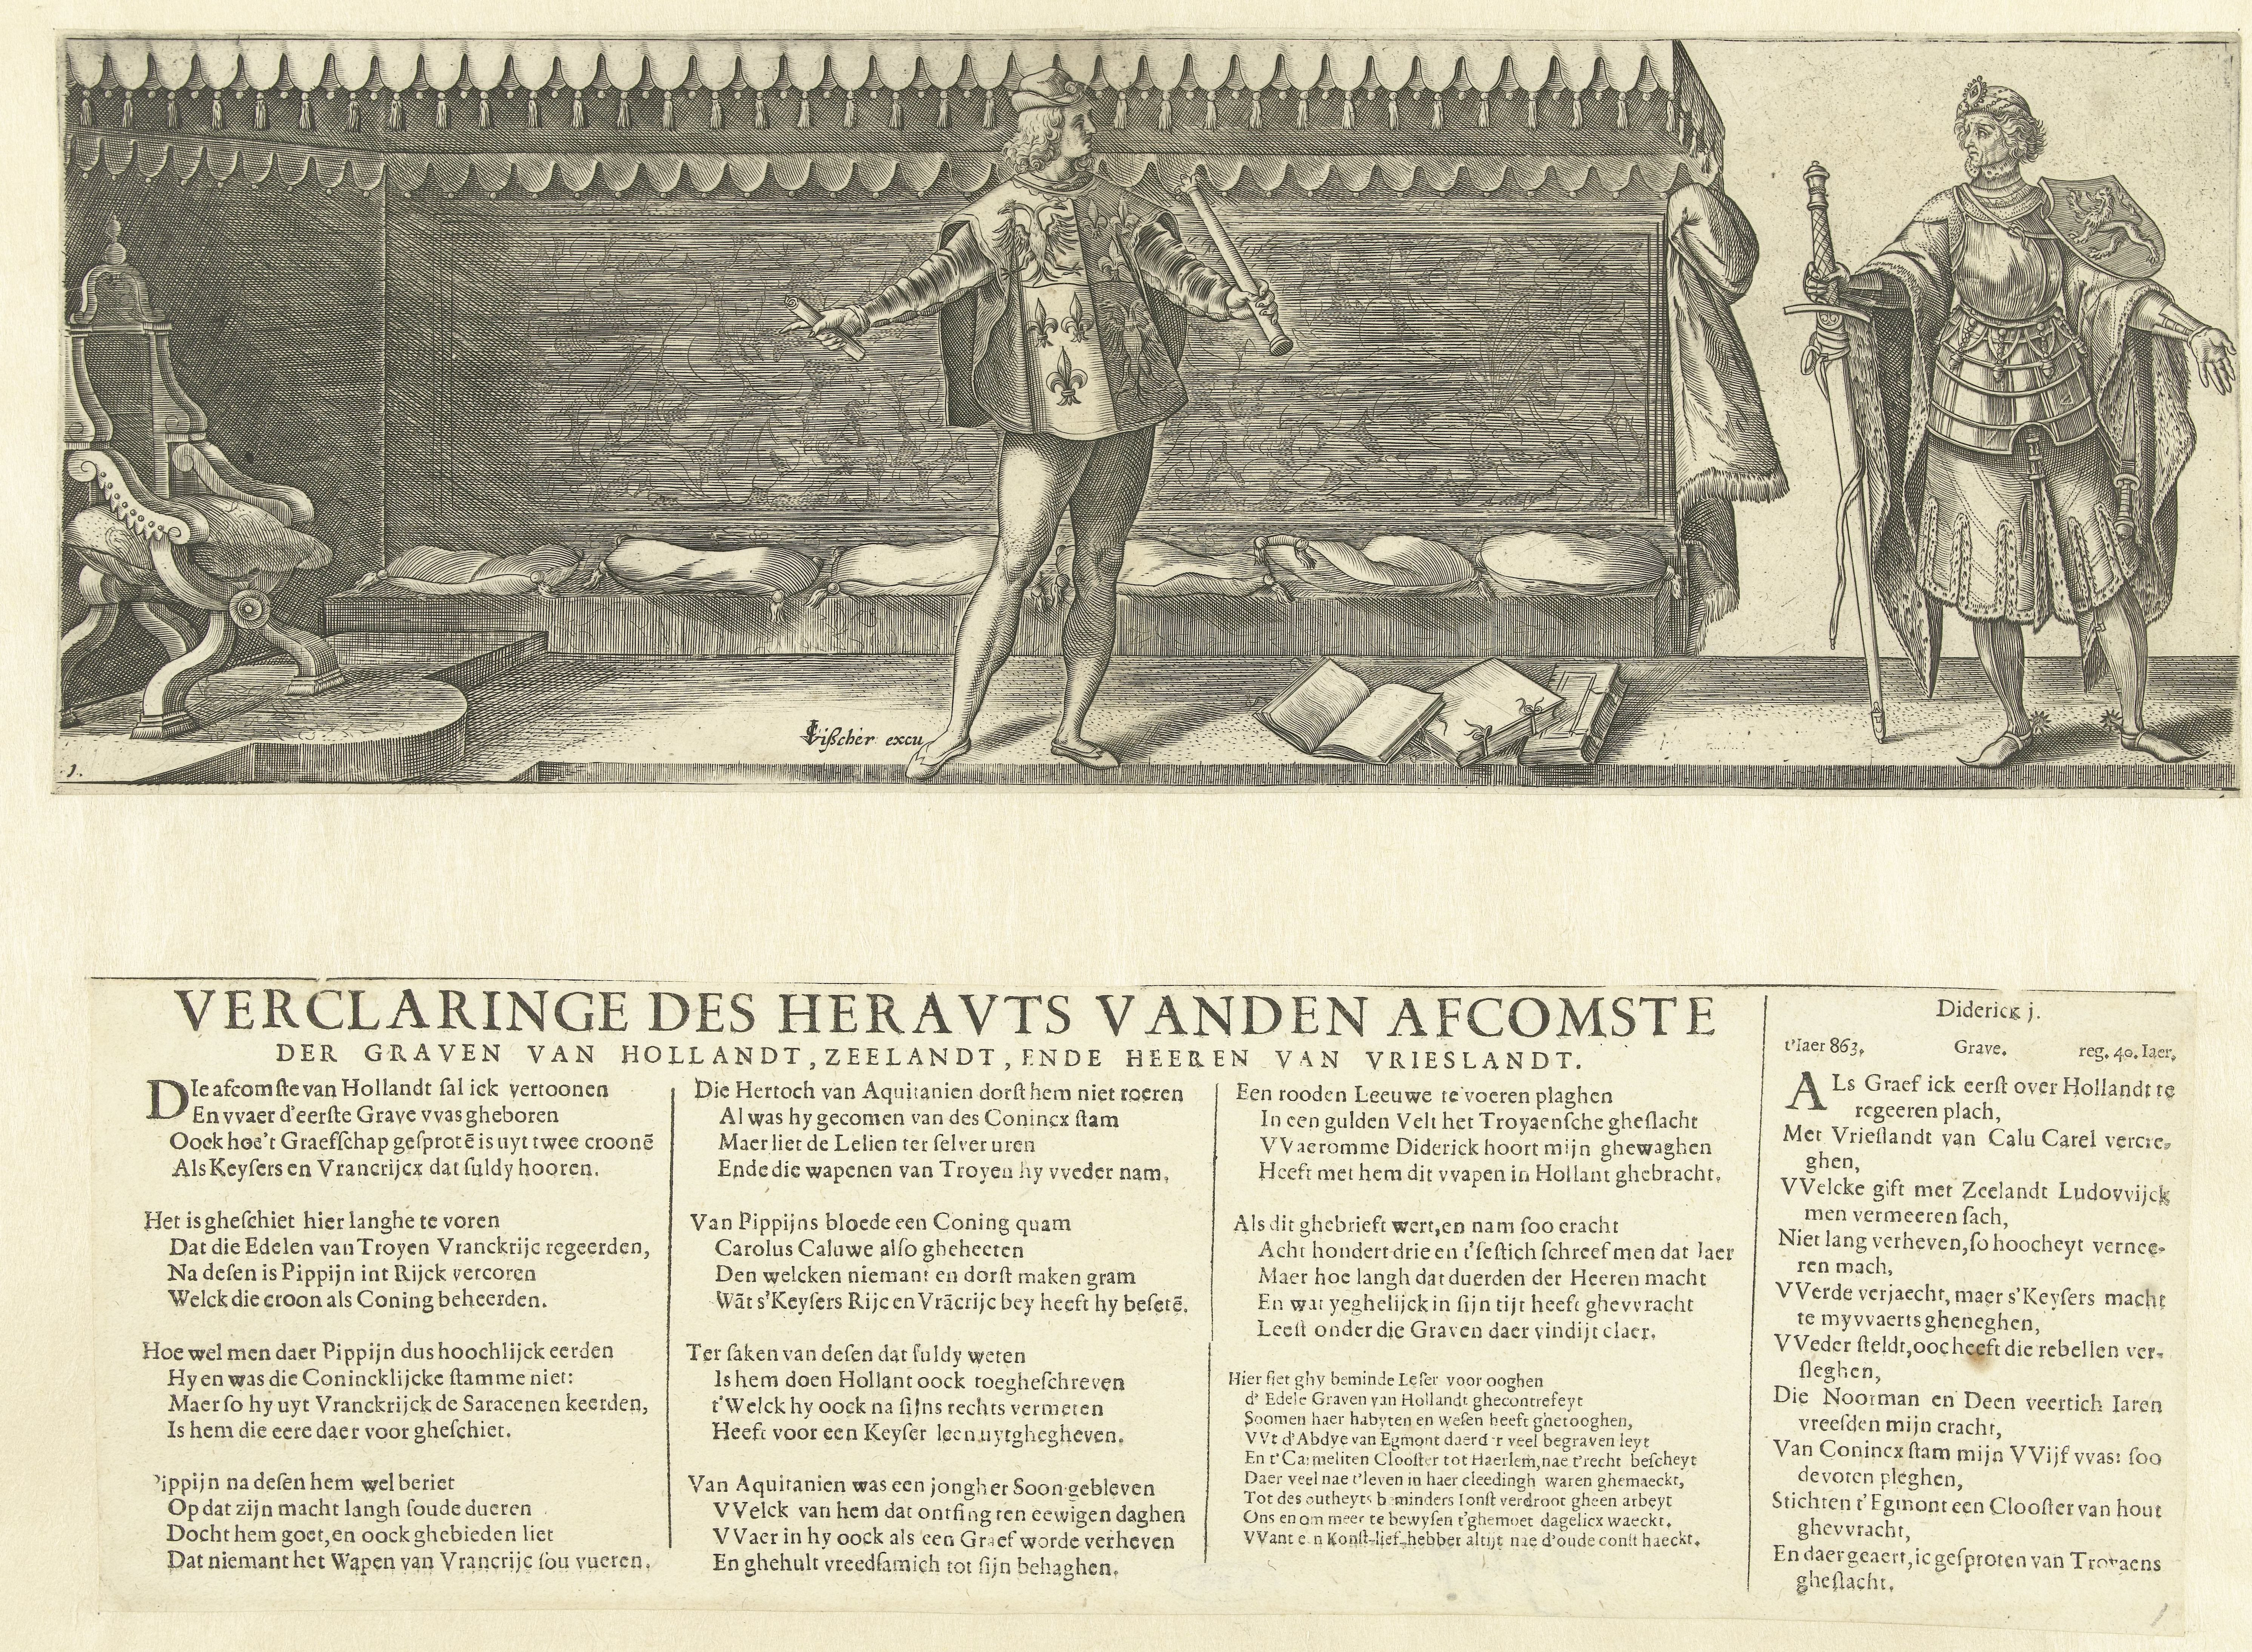 Vißcher excu
1.
VERCLARINGE DES HERAVTS VANDEN AFCOMSTE
DER GRAVEN VAN HOLLANDT, ZEELANDT, ENDE HEEREN VAN VRIESLANDT.
DIe afcomſte van Hollandt ſal ick vertoonen
En vvaer d'eerſte Grave vvas gheboren
Oock hoe't Graefſchap geſprotē is uyt twee croonē
Als Keyſers en Vrancrijcx dat ſuldy hooren.
Het is gheſchiet hier langhe te voren
Dat die Edelen van Troyen Vranckrijc regeerden,
Na deſen is Pippijn int Rijck vercoren
Welck die croon als Coning beheerden.
Hoe wel men daer Pippijn dus hoochlijck eerden
Hy en was die Conincklijcke ſtamme niet:
Maer ſo hy uyt Vranckrijck de Saracenen keerden,
Is hem die eere daer voor gheſchiet.
Pippijn na deſen hem wel beriet
Op dat zijn macht langh ſoude dueren
Docht hem goet, en oock ghebieden liet
Dat niemant het Wapen van Vrancrijc ſou vueren.
Die Hertoch van Aquitanien dorſt hem niet roeren
Al was hy gecomen van des Conincx ſtam
Maer liet de Lelien ter ſelver uren
Ende die wapenen van Troyen hy vveder nam.
Van Pippijns bloede een Coning quam
Carolus Caluwe alſo gheheeten
Den welcken niemant en dorſt maken gram
Wāt s'Keyſers Rijc en Vrācrijc bey heeft hy beſetē.
Ter ſaken van deſen dat ſuldy weten
Is hem doen Hollant oock toegheſchreven
t'Welck hy oock na ſijns rechts vermeten
Heeft voor een Keyſer leen uytghegheven.
Van Aquitanien was een jongher Soon gebleven
VVelck van hem dat ontfing ten eewigen daghen
VVaer in hy oock als een Graef worde verheven
En ghehult vreedſamich tot ſijn behaghen.
Een rooden Leeuwe te voeren plaghen
In een gulden Velt het Troyaenſche gheſlacht
VVaeromme Diderick hoort mijn ghewaghen
Heeft met hem dit vvapen in Hollant ghebracht.
Als dit ghebrieft wert, en nam ſoo cracht
Acht hondert drie en t'ſeſtich ſchreef men dat Iaer
Maer hoe langh dat duerden der Heeren macht
En wat yeghelijck in ſijn tijt heeft ghevvracht
Leeſt onder die Graven daer vindijt claer.
Hier ſiet ghy beminde Leſer voor ooghen
d' Edele Graven van Hollandt ghecontrefeyt
Soomen haer habyten en weſen heeft ghetooghen,
VVt d'Abdye van Egmont daerd'r veel begraven leyt
En t'Carmeliten Clooſter tot Haerlem, nae t'recht beſcheyt
Daer veel nae t'leven in haer cleedingh waren ghemaeckt,
Tot des outheyts beminders Ionſt verdroot gheen arbeyt
Ons en om meer te bewyſen t'ghemoet dagelicx waeckt.
VVant een Konſt-lief-hebber altijt nae d'oude conſt haeckt.
Diderick j.
t'Iaer 863. Grave. reg. 40. Iaer.
ALs Graef ick eerſt over Hollandt te
regeeren plach,
Met Vrieſlandt van Calu Carel vercre-
ghen,
VVelcke gift met Zeelandt Ludovvijck
men vermeeren ſach,
Niet lang verheven, ſo hoocheyt vernee-
ren mach,
VVerde verjaecht, maer s'Keyſers macht
te myvvaerts gheneghen,
VVeder ſteldt, ooc heeft die rebellen ver-
ſleghen,
Die Noorman en Deen veertich Iaren
vreeſden mijn cracht,
Van Conincx ſtam mijn VVijf vvas: ſoo
devoten pleghen,
Stichten t'Egmont een Clooſter van hout
ghevvracht,
En daer geaert, ic geſproten van Troyaens
gheſlacht.
1